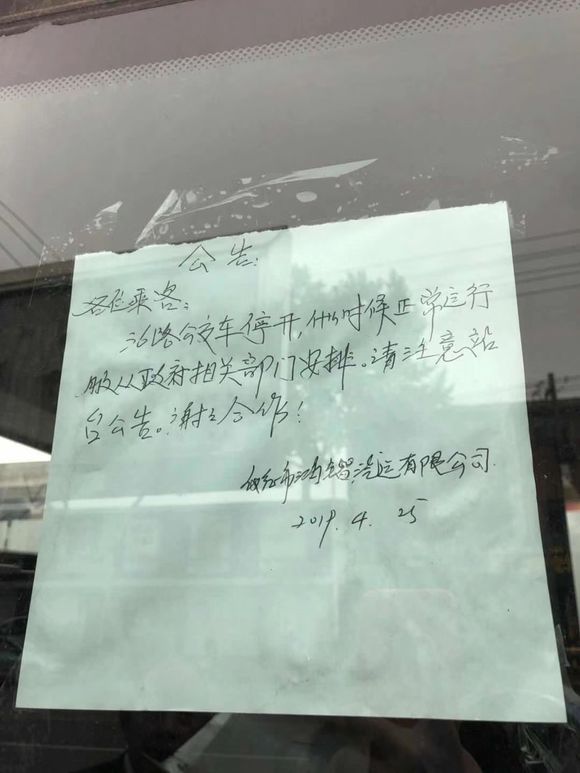 公告:
各位乘客:
路公交车停开,什么时候正常运行
服从政府相关部门安排。请注意站
台公告。谢谢合作!
市鸿昌汽运有限公司
2019.4.25